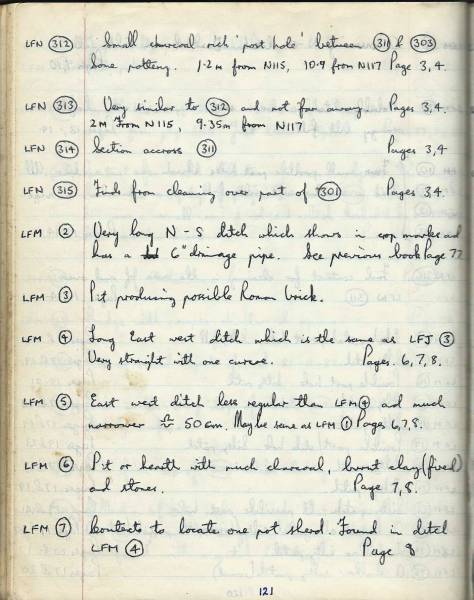 LFN 312 Small charcoal rich 'post hole' between 311 & 303
Some pottery. 1·2m from N115, 10·9 from N117 Page 3,4.
LFN 313 Very similar to 312 and not far away. Pages 3,4.
2m from N115, 9·35m from N117
LFN 314 Section accross 311 Pages 3,4
LFN 315 Finds from cleaning over part of 301 Pages 3,4.
LFM 2 Very long N-S ditch which shows in crop marks and
has a 6" drainage pipe. See previous book Page 72
LFM 3 Pit producing possible Roman brick.
LFM 4 Long East west ditch which is the same as LFJ 3
Very straight with one curve. Pages 6,7,8.
LFM 5 East west ditch less regular than LFM 4 and much
narrower ≈ 50cm. Maybe same as LFM 1 Pages 6,7,8.
LFM 6 Pit or hearth with much charcoal, burnt clay (fired)
and stones. Page 7,8.
LFM 7 Contexts to locate one pot sherd. Found in ditch
LFM 4 Page 8
121